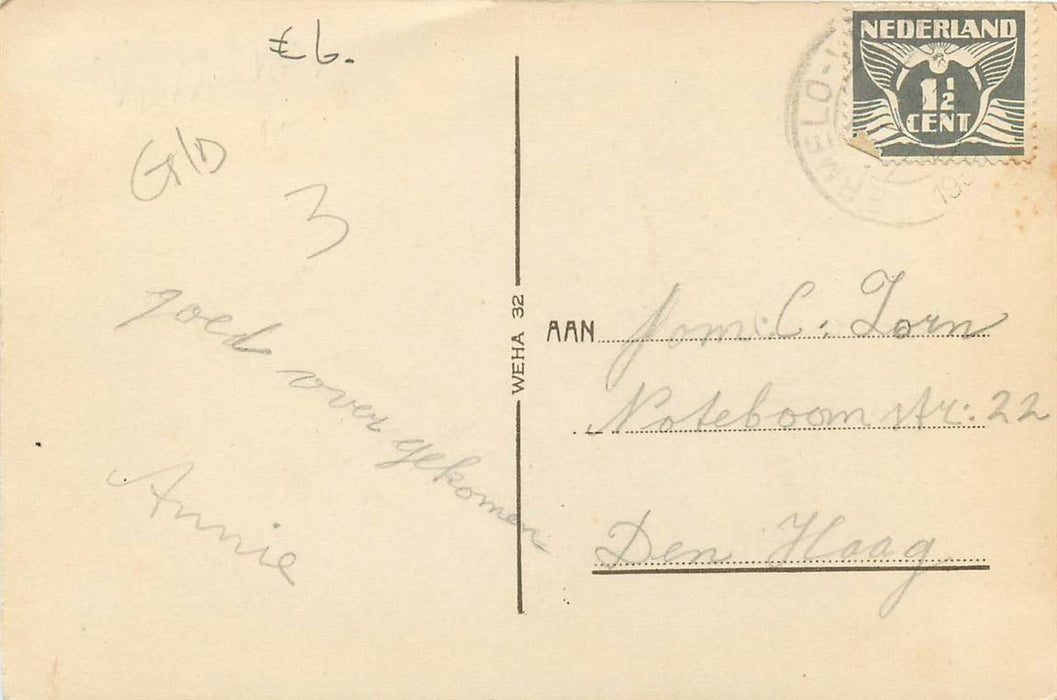 € 6.
G/D
3
goed over gekomen
Annie
WEHA 32
NEDERLAND
1 1/2
CENT
ERMELO
AAN Fam: C: Zorn
Noteboom str: 22
Den Haag